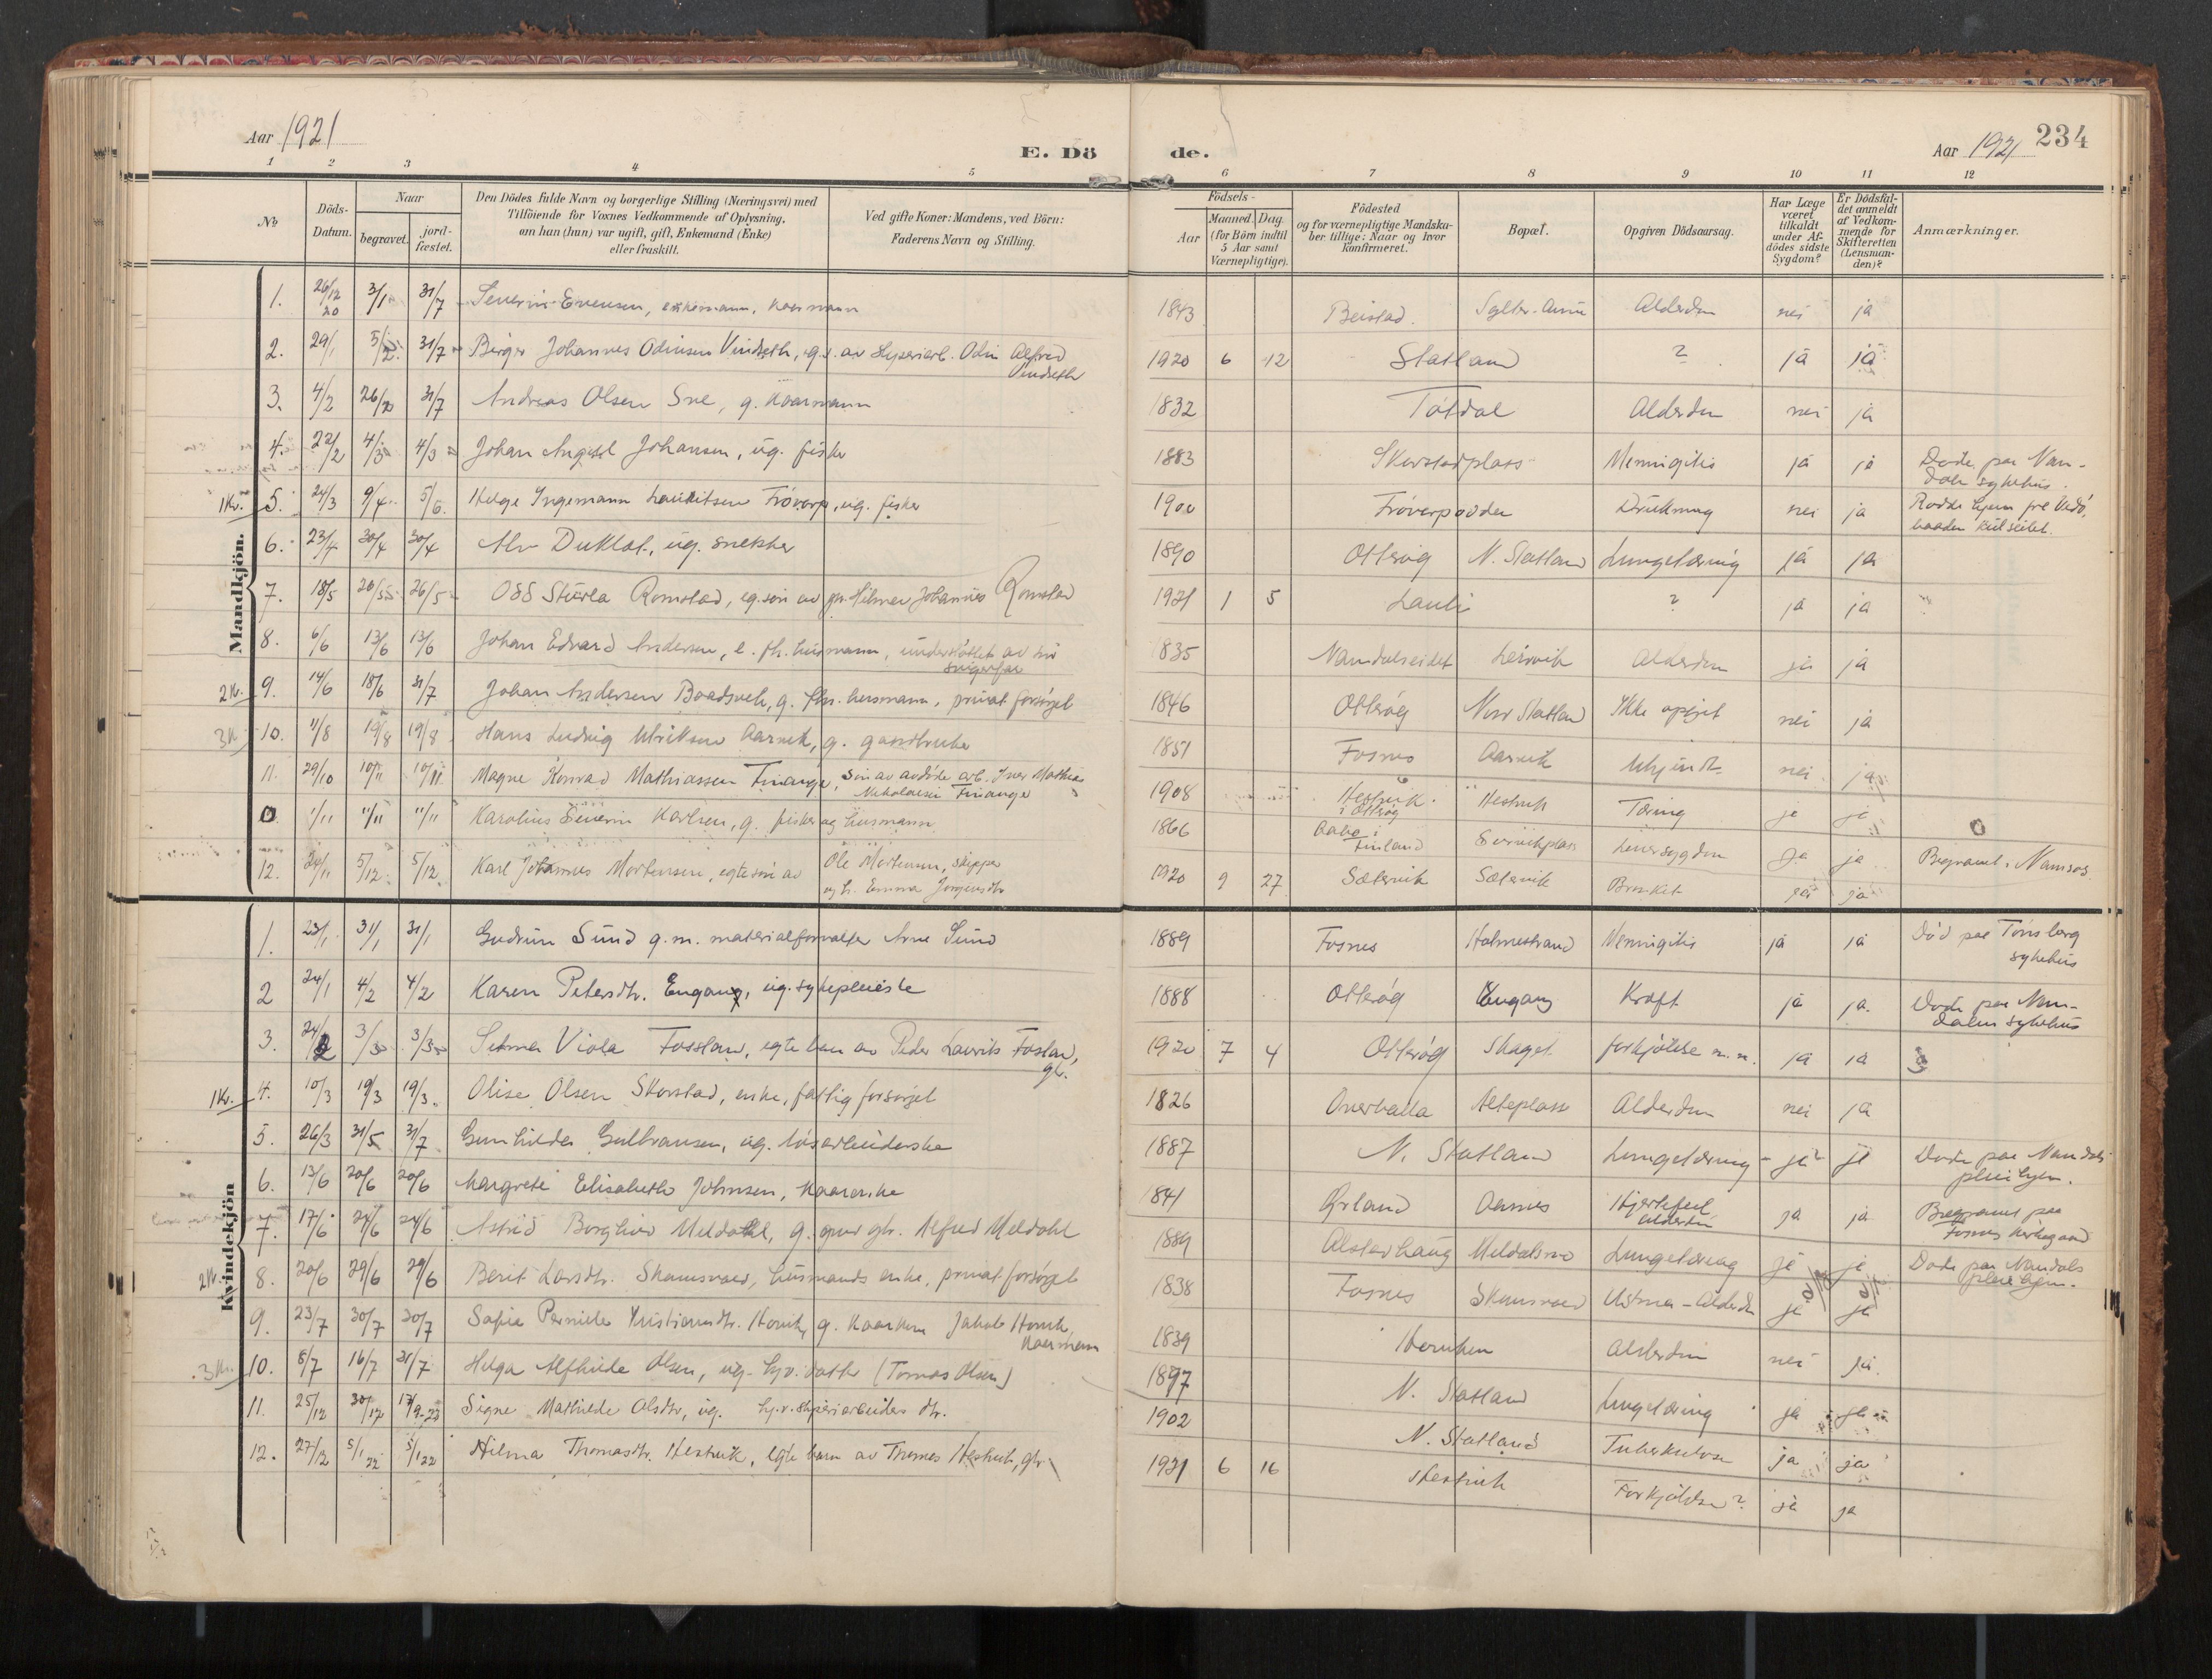 Aar 1921
E. Dö de.
Aar 1921 234
1 2 3 4 5 6 7 8 9 10 11 12
No
Döds-Datum.
Naar
begravet.
jord-fæstet.
Den Dödes fulde Navn og borgerlige Stilling (Næringsvei) med
Tilföiende for Voxnes Vedkommende af Oplysning,
om han (hun) var ugift, gift, Enkemand (Enke)
eller fraskilt.
Ved gifte Koner: Mandens, ved Börn:
Faderens Navn og Stilling.
Födsels-
Aar
Maaned. Dag.
(for Börn indtil
5 Aar samt
Værnepligtige).
Födested
og for værnepligtige Mandskaber tillige: Naar og hvor
konfirmeret.
Bopæl.
Opgiven Dödsaarsag.
Har Læge
været
tilkaldt
under Afdödes sidste
Sygdom?
Er Dödsfaldet anmeldt
af Vedkommende for
Skifteretten
(Lensmanden)?
Anmærkninger.
Mandkjön.
1. 26/12 20 3/1 31/7 Severin Evensen, enkemann, kaarmann 1843 Beistad. Alderdom nei ja
2. 29/1 5/2 31/7 Birger Johannes Odinsen Vindseth, e.s. av sliperiarb. Odin Alfred
Vindseth 1920 6 12 Statland ? ja ja
3. 4/2 26/2 31/7 Andreas Olsen Sve, g. kaarmann 1832 Tøtdal Alderdom nei ja
4. 22/2 4/3 4/3 Johan Angell Johansen, ug. fisker 1883 Skorstadplass Meningitis ja ja Døde paa Namdals sykehus.
1 Kv. 5. 24/3 9/4 5/6. Helge Ingemann Lauritsen Frøverp, ug. fisker 1900 Drukning nei ja
6. 23/4 30/4 30/4 ug. snekker 1890 Otterøy N. Statland Lungetæring ja ja
7. 18/5 26/5 26/5 Odd Sturla Romstad, eg. søn av Hilmar Johannes Romstad 1921 1 5 Lauli ? ja ja
8. 6/6 13/6 13/6 Johan Edvard Andersen, e. fh. husmann, understøttet av sin
svigerfar 1835 Namdalseidet Leirvik Alderdom ja ja
2 K. 9. 14/6 18/6 31/7 Johan Andersen Baadsvik, g. fhv. husmann, privat forsørget 1846 Otterøy Nord Statland Ikke opgit nei ja
3 K. 10. 11/8 19/8 19/8 Hans Ludvig Ulriksen Aarvik, g. gaardbruker 1851 Fosnes Aarvik Ukjendt nei ja
11. 29/10 10/11 10/11 Magne Konrad Mathiassen Finanger, søn av avdøde arb. Iver Mathias
Nikolaisen Finanger 1908 Hestvik
i Otterøy Hestvik Tæring ja ja
0 1/11 11/11 11/11 Karolius Severin Karlsen, g. fisker og husmann 1866 Aabo i
Finland Leversygdom ja ja Begravet i Namsos
12. 24/11 5/12 5/12 Karl Johannes Mortensen, egte søn av Ole Mortensen, skipper
og h. Emma Jørgensdtr. 1920 9 27 Sætervik Sætervik Bronkit ja ja
Kvindekjön
1. 23/1 31/1 31/1 Gudrun Sund g.m. materialforvalter Arne Sund 1889 Fosnes Holmestrand Meningitis ja ja Død paa Tønsberg
sykehus
2 24/1 4/2 4/2 Karen Petersdtr. Engang, ug. sykepleierske 1888 Otterøy Engang Kræft ja ja. Døde paa Namdalens sykehus
3. 24/2 3/3 3/3 Selma Viola Fossland, egte barn av Peder Laurits Fosland,
gb. 1920 7 4 Otterøy Skaget forkjølelse m.m. ja ja
1 Kv. 4. 10/3 19/3 19/3. Olise Olsen Skorstad, enke, fattigforsørget 1826 Overhalla Alteplass Alderdom nei ja
5. 26/3 31/5 31/7 Gunhilda Gulbransen, ug. løsarbeiderske 1887 N. Statland Lungetæring ja ja Døde paa Namdals
pleiehjem.
6. 13/6 20/6 20/6 Margrete Elisabeth Johnsen, kaarenke 1841 Ørland Aarnes Hjertefeil
Alderdom ja ja Begravet paa
Fosnes kirkegaard
7. 17/6 24/6 24/6 Astrid Borghild Meldahl, g. gaar gbr. Alfred Meldahl 1889 Alstahaug Meldalsmo Lungetæring ja ja Døde paa Namdals
pleiehjem.
2 K. 8. 20/6 29/6 29/6 Berit Larsdtr. Skansvaed, husmands enke, privat forsørget 1838 Fosnes Skansvaed Astma-Alderdom ja ja
9. 23/7 30/7 30/7 Sofie Pernille Kristiansdtr. Hornk, g. kaarkone Jakob Hornk
kaarmann 1839 Alderdom nei ja.
3 K. 10. 8/7 16/7 31/7 Helga Alfhilde Olsen, ug. hjv. datter (Tomas Olsen) 1897 N. Statland Lungetæring ja ja
11. 25/12 30/12 17/9-22 Signe Mathilde Olsdtr, ug. hj.v. sliperiarbeiders dtr. 1902 N. Statland Tuberkulose ja ja
12. 27/12 5/1 22 5/1 22 Hilma Thomasdtr. Hestvik, egte barn av Thomas Hestvik, gbr. 1921 6 16 Hestvik Forkjølelse? ja ja